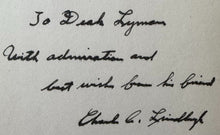 To Deak Lyman
With admiration and
best wishes from his friend
Charles A. Lindbergh